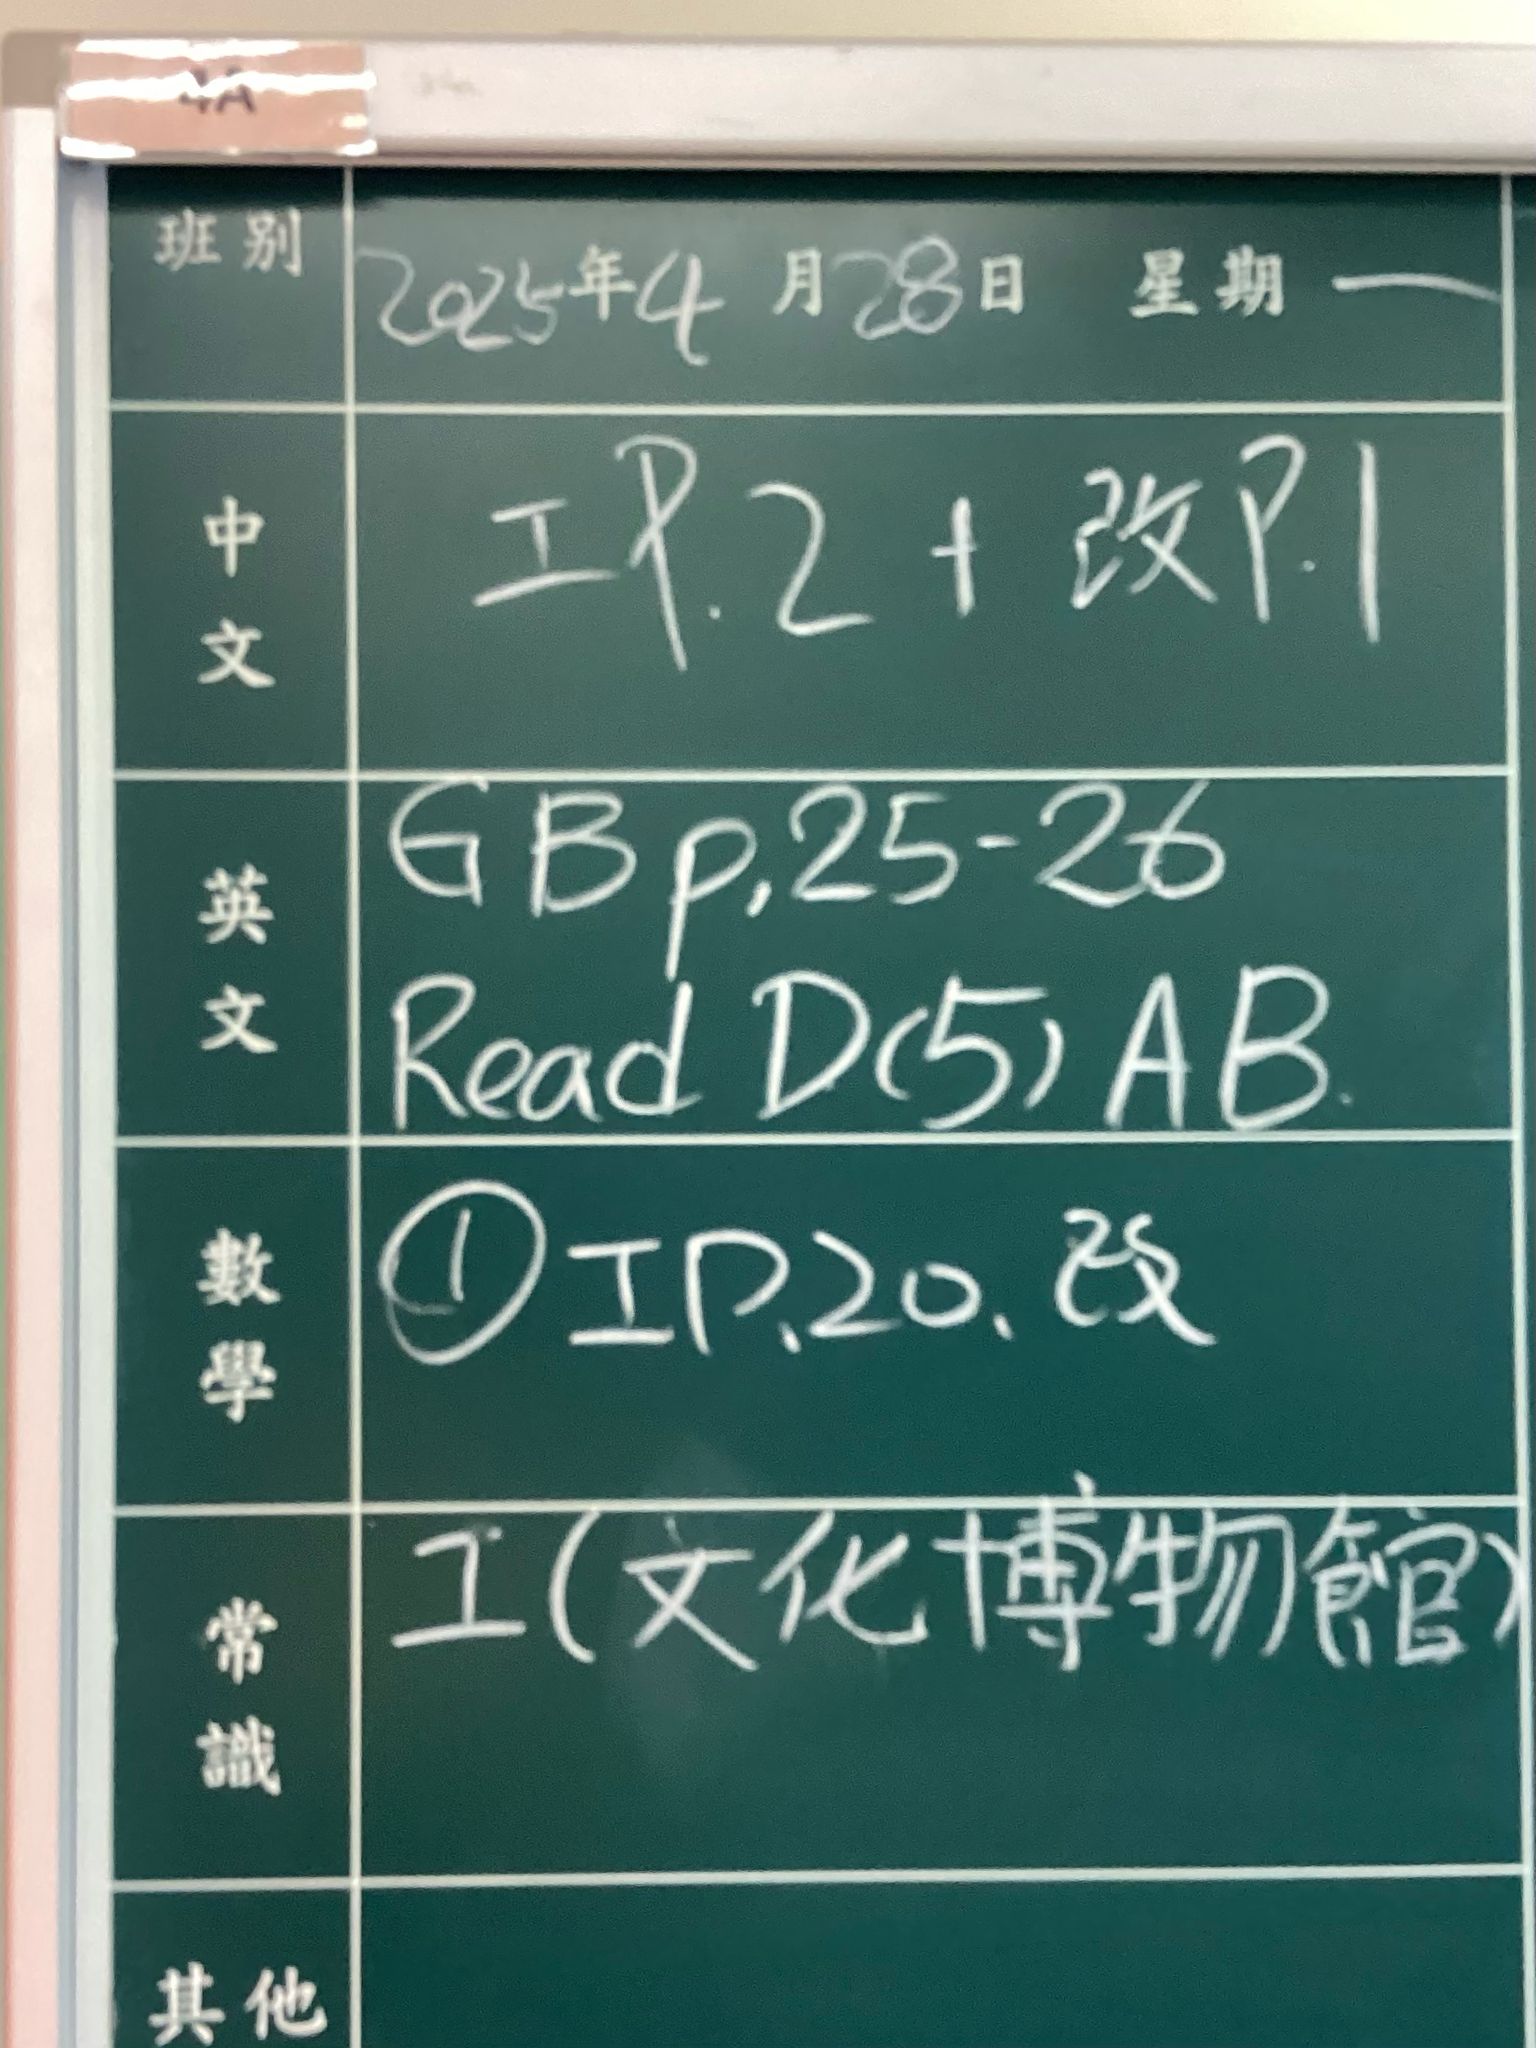 4A
班別 2025年4月28日 星期一
中文 工P.2 + 改P.1
英文 GB p.25-26
Read D(5) AB.
數學 ① 工P.20.改
常識 工(文化博物館)
其他